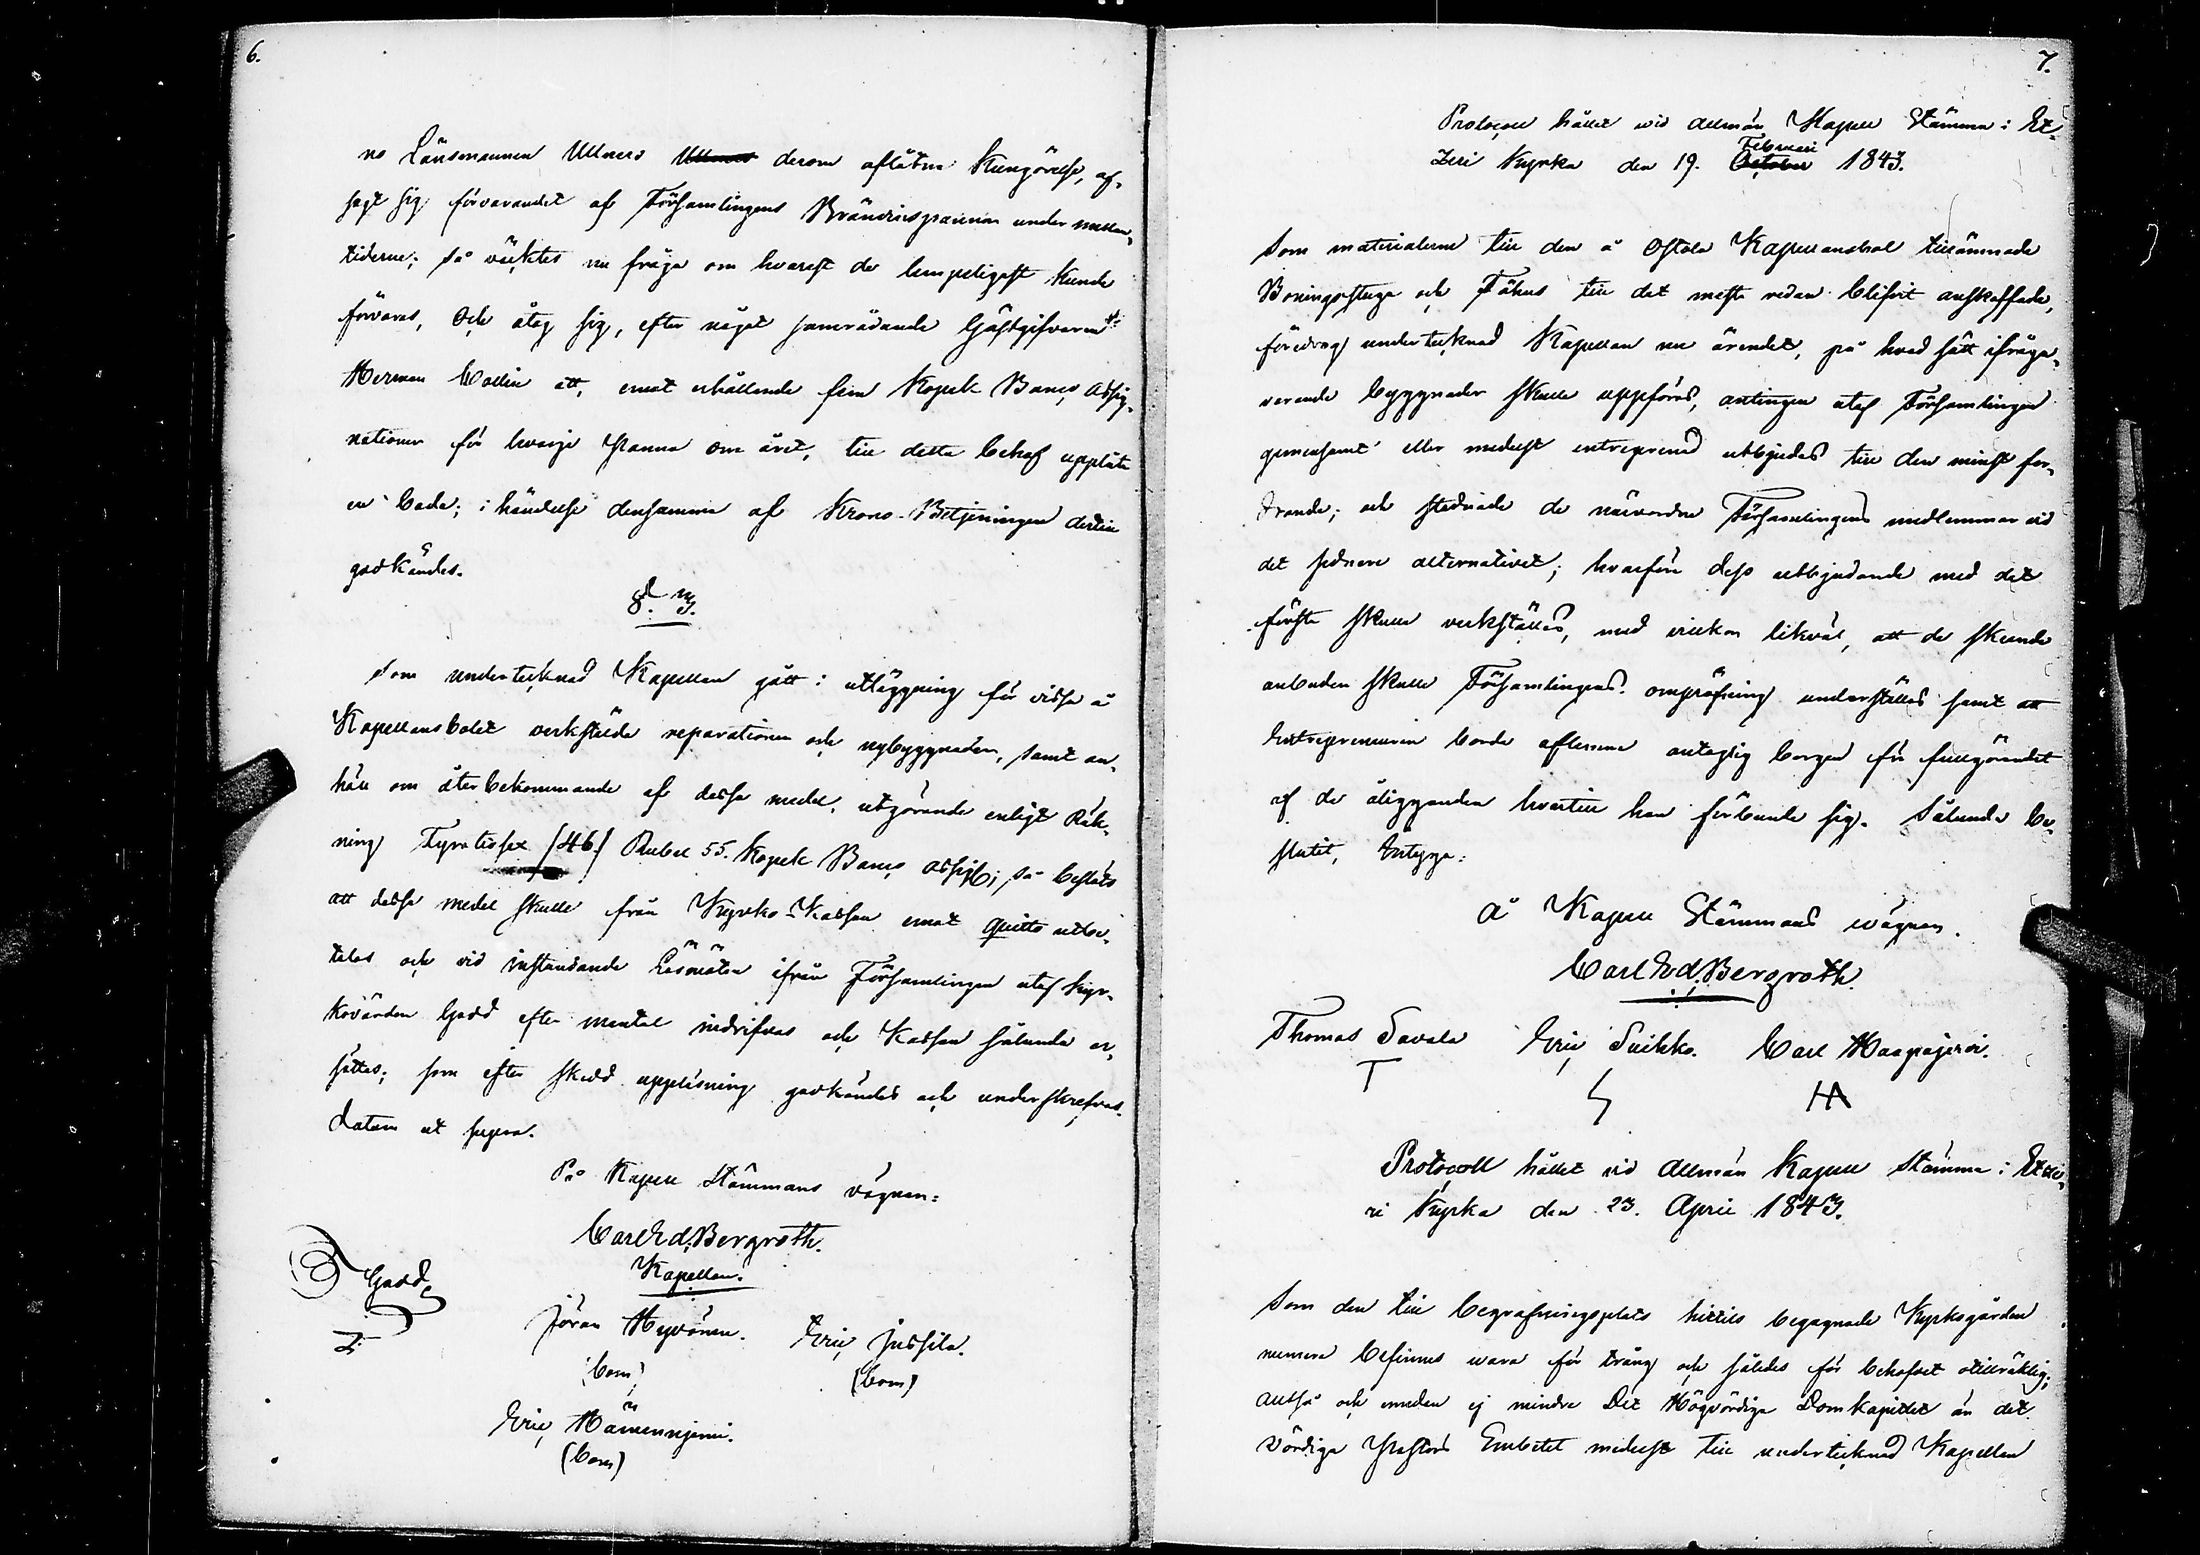 6.
ns Länsmannen Ullners Ullners derom aflåtne Kungörelse, af-
sagt sig förvarandet af Församlingens Brännvinspannor under mellan-
tiderne; så väcktes nu fråga om hvarest de lempeligast kunde
förvaras, Och åtog sig, efter något samrådande Gästgifvaren
Herman Collin att, emot erhållande fem Kopek Banco Assig-
nationer för hvarje panna om året, till detta behof upplåta
en bod; i händelse densamma af Krono-Betjeningen dertill
godkändes.
§. 3.
Som undertecknad Kapellan gått i utläggning för vissa å
Kapellansbolet verkstälda reparationer och nybyggnader, samt an-
höll om återbekommande af dessa medel, utgörande enligt Räk-
ning Fyratiosex [46] Rubel 55. Kopek Banco Assig; så beslöts
att dessa medel skulle från Kyrko-Kassan emot quitto utbe-
talas och vid instundande Läsmöten ifrån Församlingen utaf Kyr-
kovärden Gadd efter mantal indrifvas och Kassan sålunda er-
sättas; som efter skedd uppläsning godkändes och underskrefvos.
Datum ut supra.
På Kapell Stämmans vägnar:
Carl Ed. Bergroth.
Kapellan.
Gadd
Jöran Hyvönen.
(bom)
Eric Jussila.
(bom)
Eric Hämeenniemi.
(bom)
7.
Protocoll hållet wid allmän Kapell Stämma i Et-
Februari
zeri Kyrka den 19. October 1843.
Som materialerne till den å Ostola Kapellansbol tillämnade
Boningsstuga och Fähus till det mesta redan blifvit anskaffade,
föredrog undertecknad Kapellan nu ärendet, på hvad sätt ifråga-
varande byggnader skulle uppföras, antingen utaf Församlingen
gemensamt eller medelst entreprenad utbjudas till den minst for-
drande; och stadnade de närvarande Församlingens medlemmar vid
det sednare alternativet; hvarföre dess utbjudande med det
första skulle verkställas, med vilkor likväl, att de skeende
anbuden skulle Församlingens ompröfning underställas samt att
Entrepreneuren borde aflemna antaglig borgen för fullgörandet
af de åligganden hvartill han förbunde sig. Sålunda be-
slutit, betyga:
å Kapell Stämmans wägnar.
Carl Ed. Bergroth.
Thomas Savola Eric Suikko. Carl Haapajervi.
T
HA
Protocoll hållet vid Allmän Kapell Stämma i Etze-
ri Kyrka den 23. April 1843.
Som den till begrafningsplats hittils begagnade Kyrkogården
numera befinnes vara för trång och således för behofvet otillräklig,
alltså och emedan ej mindre Det Högvördiga Domkapitlet än det
Vördiga Pastors Embetet medelst till undertecknad Kapellan